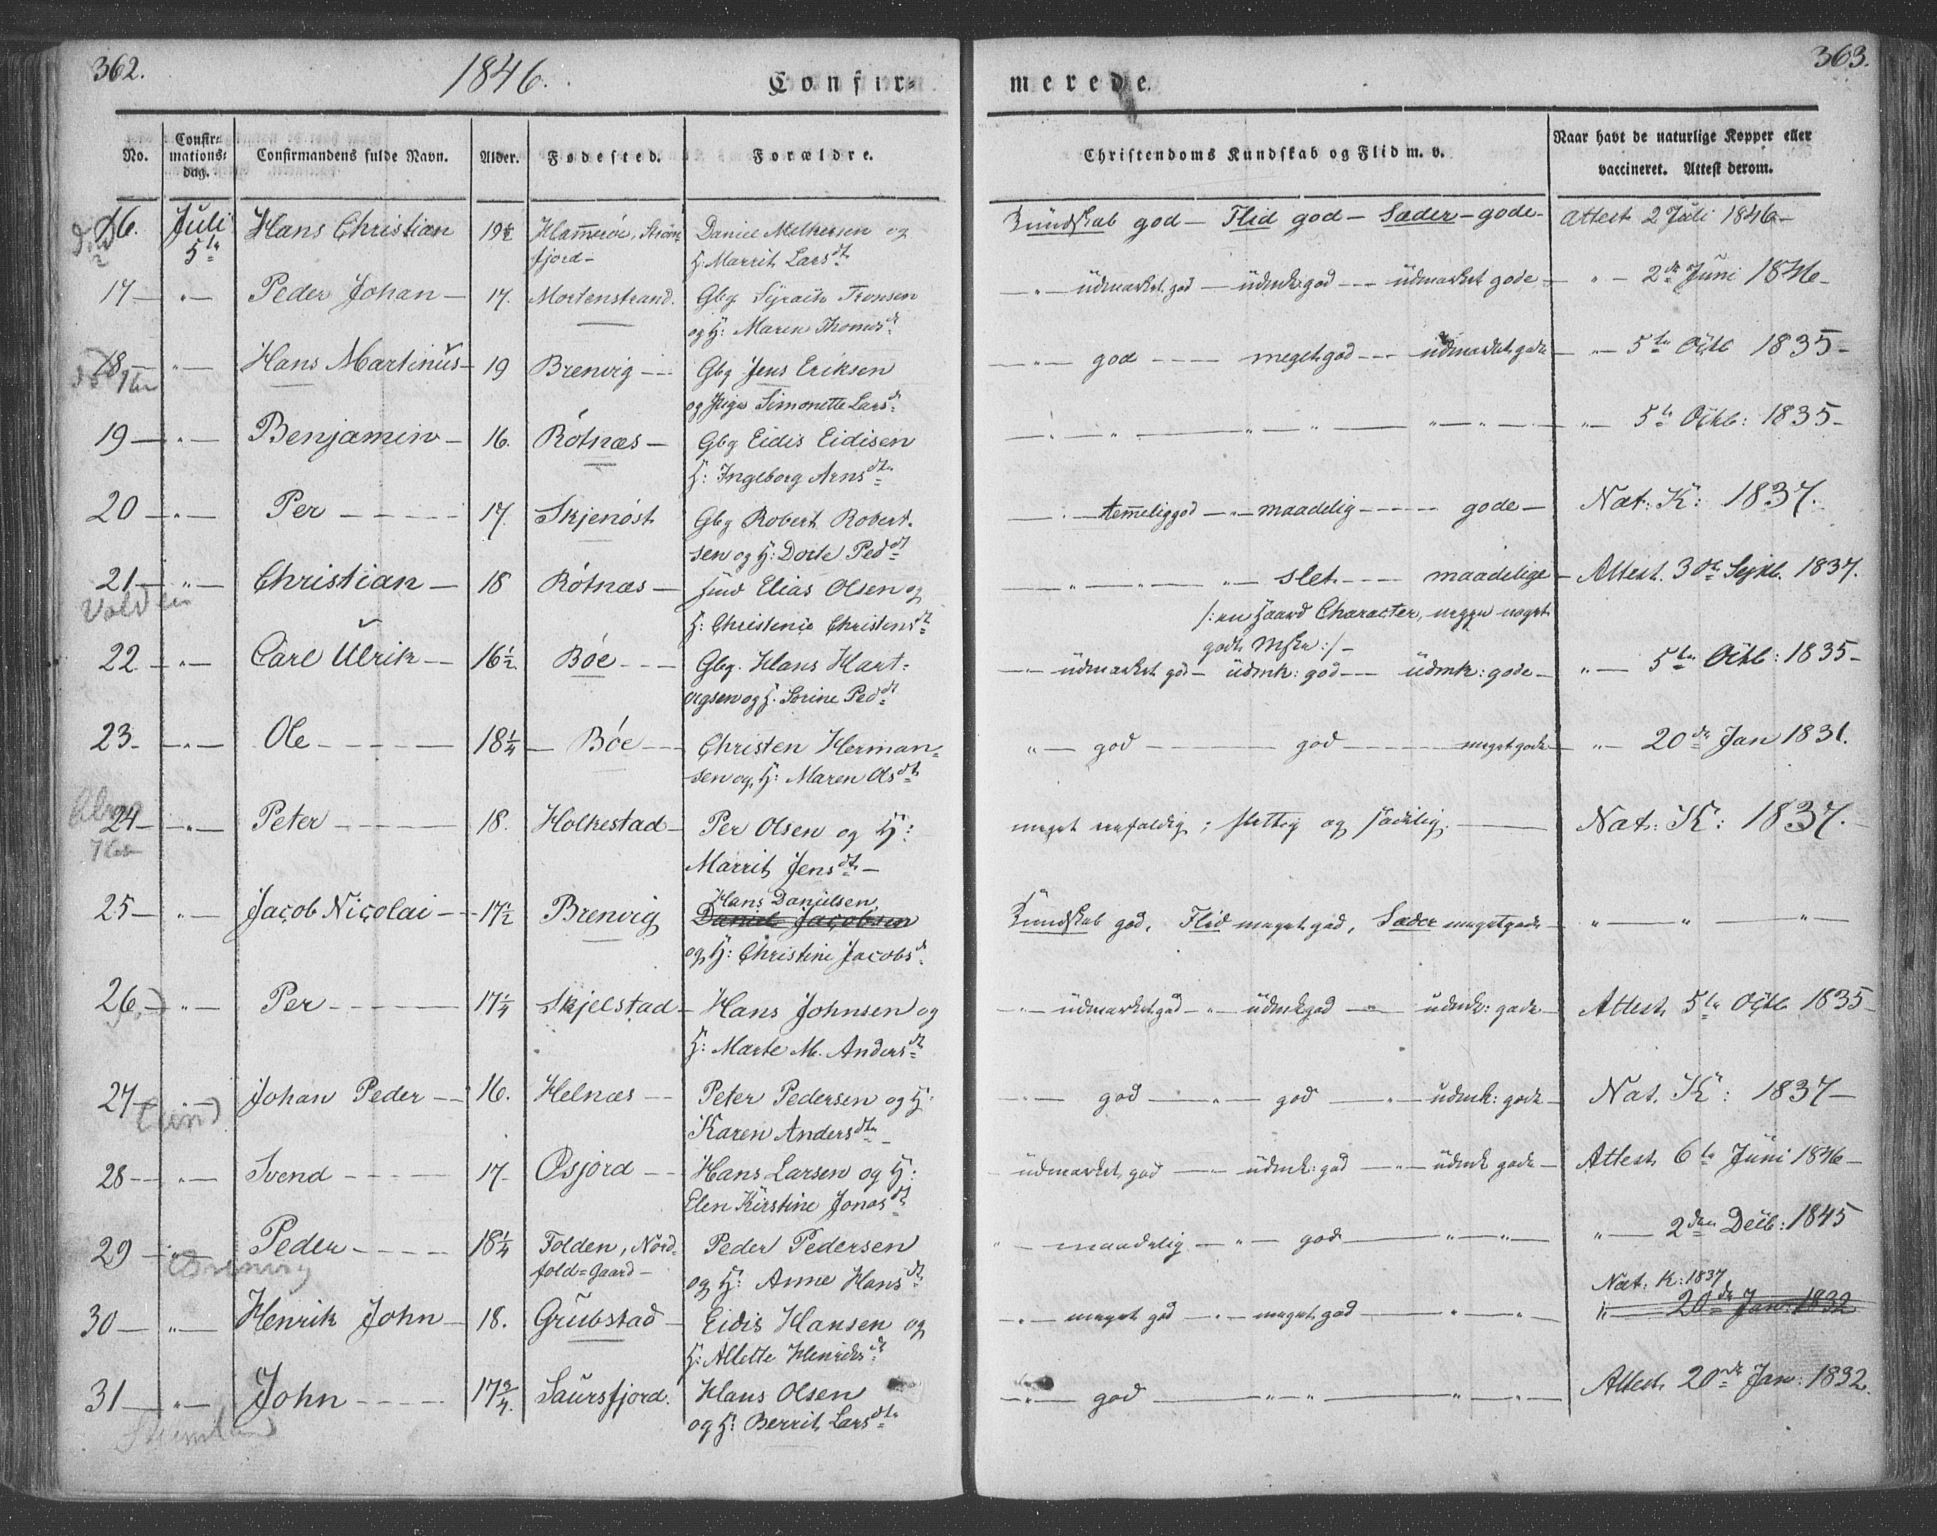 362.
1846.
Confir-
merede.
363.
No.
Confir-
mations-
dag.
Confirmandens fulde Navn.
Alder.
Fødested.
Forældre.
Christendoms Kundskab og Flid m. v.
Naar havt de naturlige Kopper eller
vaccineret. Attest derom.
16. Juli Hans Christian 19½ Hamerøe, Strøm Daniel Melkersen og Kundskab god — Flid god — Sæder — gode — Attest 2 Juli 1846 —
5te fjord — H: Marrit Larsdtr
17 — " — Peder Johan — 17. Mortenstrand. Gbg Tronsen — " — üdmærket god — üdmk: god — — üdmærket gode — " — 2de Juni 1846 —
og H: Maren Thomasd.
18 — " — Hans Martinus — 19 Brenvig — — Gbg Jens Eriksen — " — god — — — meget god — — — üdmærket gode — " — 5te Octb 1835 —
og Pige Simonette Larsd.
19 — " — Benjamin — 16. Rótnæs — Gbg Eidis Eidisen — " — " — " — " — " — 5te Octb: 1835 —
H: Ingeborg Arnsdtr
20 — " — Per — — — — 17. Skjenøst Gbg Robert Robert- — " — temelig god — " — maadelig — — — — gode — Nat: K: 1837.
sen og H: Dorte Pedd.
21 — " — Christian — 18 Rótnæs — Elias Olsen og " — " — " — " — slet — — — maadelige — Attest. 30te Septb. 1837.
Volden
H: Christenie Christensdt
/: en haard Character, neppe noget
godt Mske :/ —
22 " — Carl Ulrik — 16½ Bøe — — — Gbg. Hans Hart- — " — üdmærket god — üdmk: god — — üdmk: gode — " — 5te Octb: 1835 —
vigsen og H. Sorine Pedd.
23. — " — Ole — — — — — 18¼ — Bøe — — Christen Herman- " — god — god — meget gode — " — 20de Jan 1831.
sen og H: Maren Olsdt.
24 — — " — Peter — — — — 18. Holkestad — Per Olsen og H: meget eenfoldig; flittig og sædelig. — Nat: K: 1837. —
Marrit Jensdtr —
25 — " — Jacob Nicolai — 17½ Brenvig Hans Danielsen, Kundskab god, Flid meget god, Sæder meget gode — " — " — " —
Daniel Jacobsen
og H: Christine Jacobsd.
26 — " — Per — — — — 17¼ Skjelstad — Hans Johnsen og — " — üdmærket god — " — üdmk god — " — üdmk: gode — Attest 5te Octb 1835 —
H: Marte M. Andersdt
27 — " — Johan Peder — — 16. Helnæs — — Peter Pedersen og H: — " — god — " — god — " — üdmk: gode — Nat. K: 1837 —
Lund
Karen Andersdtr —
28 — — " — Svend — — — — 17. Øsjord — — Hans Larsen og H: üdmærket god — " — üdmk: god — " — üdmk gode — Attest 6te Juni 1846 —
Elen Kirstine Jonasdt
29 — " — Peder — — — — 18¼ Folden, Nord- Peder Pedersen " — maadelig — " — god — " — " — " — 2den Decb: 1845
Brenvig
fold-Gaard — og H: Anne Hansdt
Nat: K: 1837
30 — " — Henrik John — 18. Grubstad — Eidis Hansen og — " — meget god — " — meget god — " — " — " — 20de Jan: 1832
H: Allette Henriksd.
31 — " — John — — — — 17¾. Saursfjord. Hans Olsen — " — god — " — " — " — " — Attest 20de Jan: 1832.
og H: Berrit Larsdtr